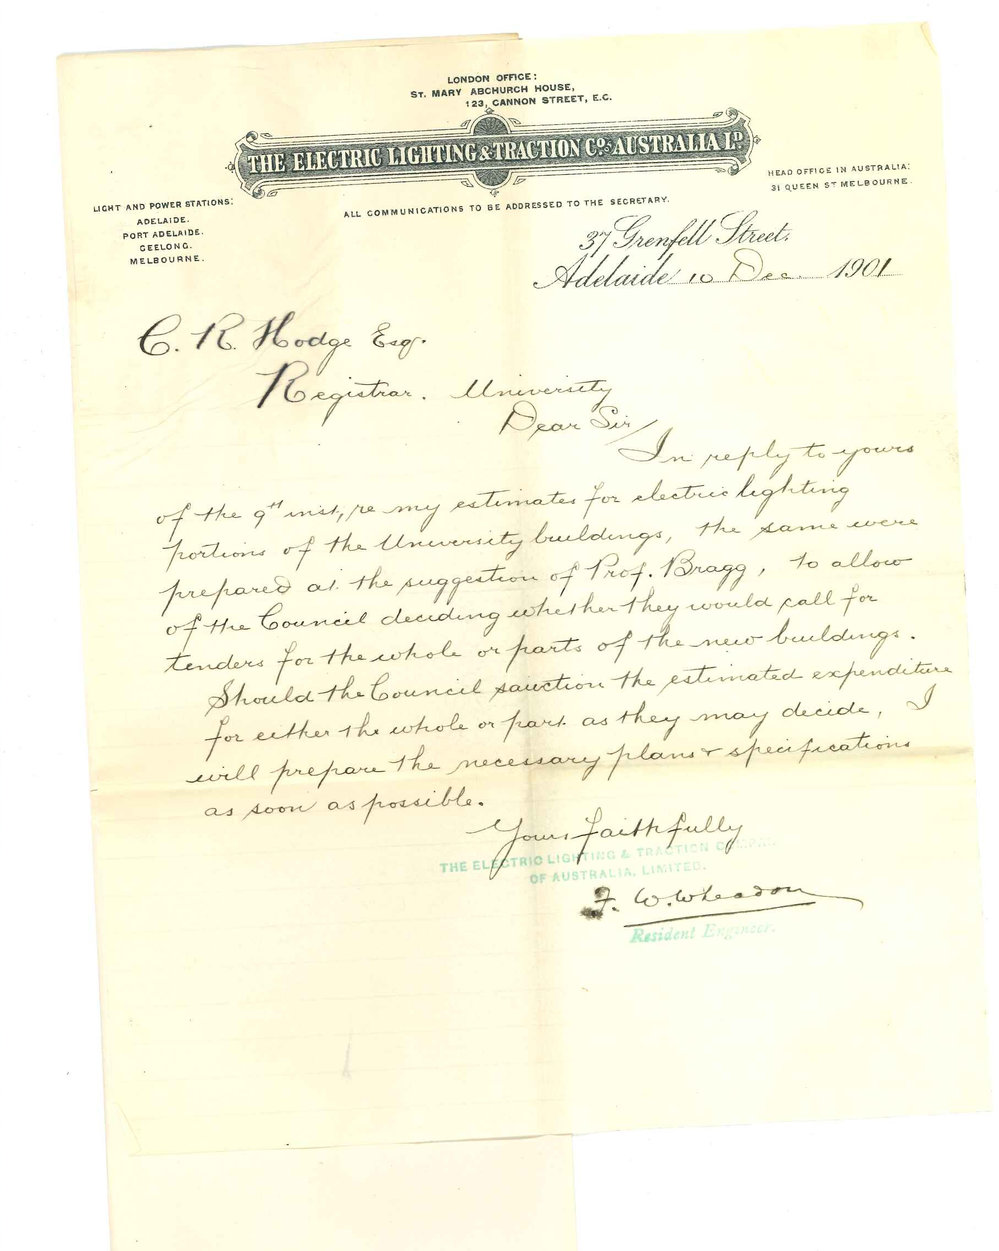 LONDON OFFICE:
ST. MARY ABCHURCH HOUSE,
123, CANNON STREET, E.C.
THE ELECTRIC LIGHTING & TRACTION Co. OF AUSTRALIA LD.
HEAD OFFICE IN AUSTRALIA:
31 QUEEN ST MELBOURNE.
LIGHT AND POWER STATIONS:
ADELAIDE.
PORT ADELAIDE.
GEELONG.
MELBOURNE.
ALL COMMUNICATIONS TO BE ADDRESSED TO THE SECRETARY.
37 Grenfell Street.
Adelaide 10 Dec. 1901
C. R. Hodge Esq.
Registrar. University
Dear Sir/
In reply to yours
of the 9th inst, re my estimates for electric lighting
portions of the University buildings, the same were
prepared at the suggestion of Prof. Bragg, to allow
of the Council deciding whether they would call for
tenders for the whole or parts of the new buildings.
Should the Council sanction the estimated expenditure
for either the whole or part as they may decide, I
will prepare the necessary plans & specifications
as soon as possible.
Yours faithfully
THE ELECTRIC LIGHTING & TRACTION COMPANY
OF AUSTRALIA, LIMITED.
F. W. Wheadon
Resident Engineer.